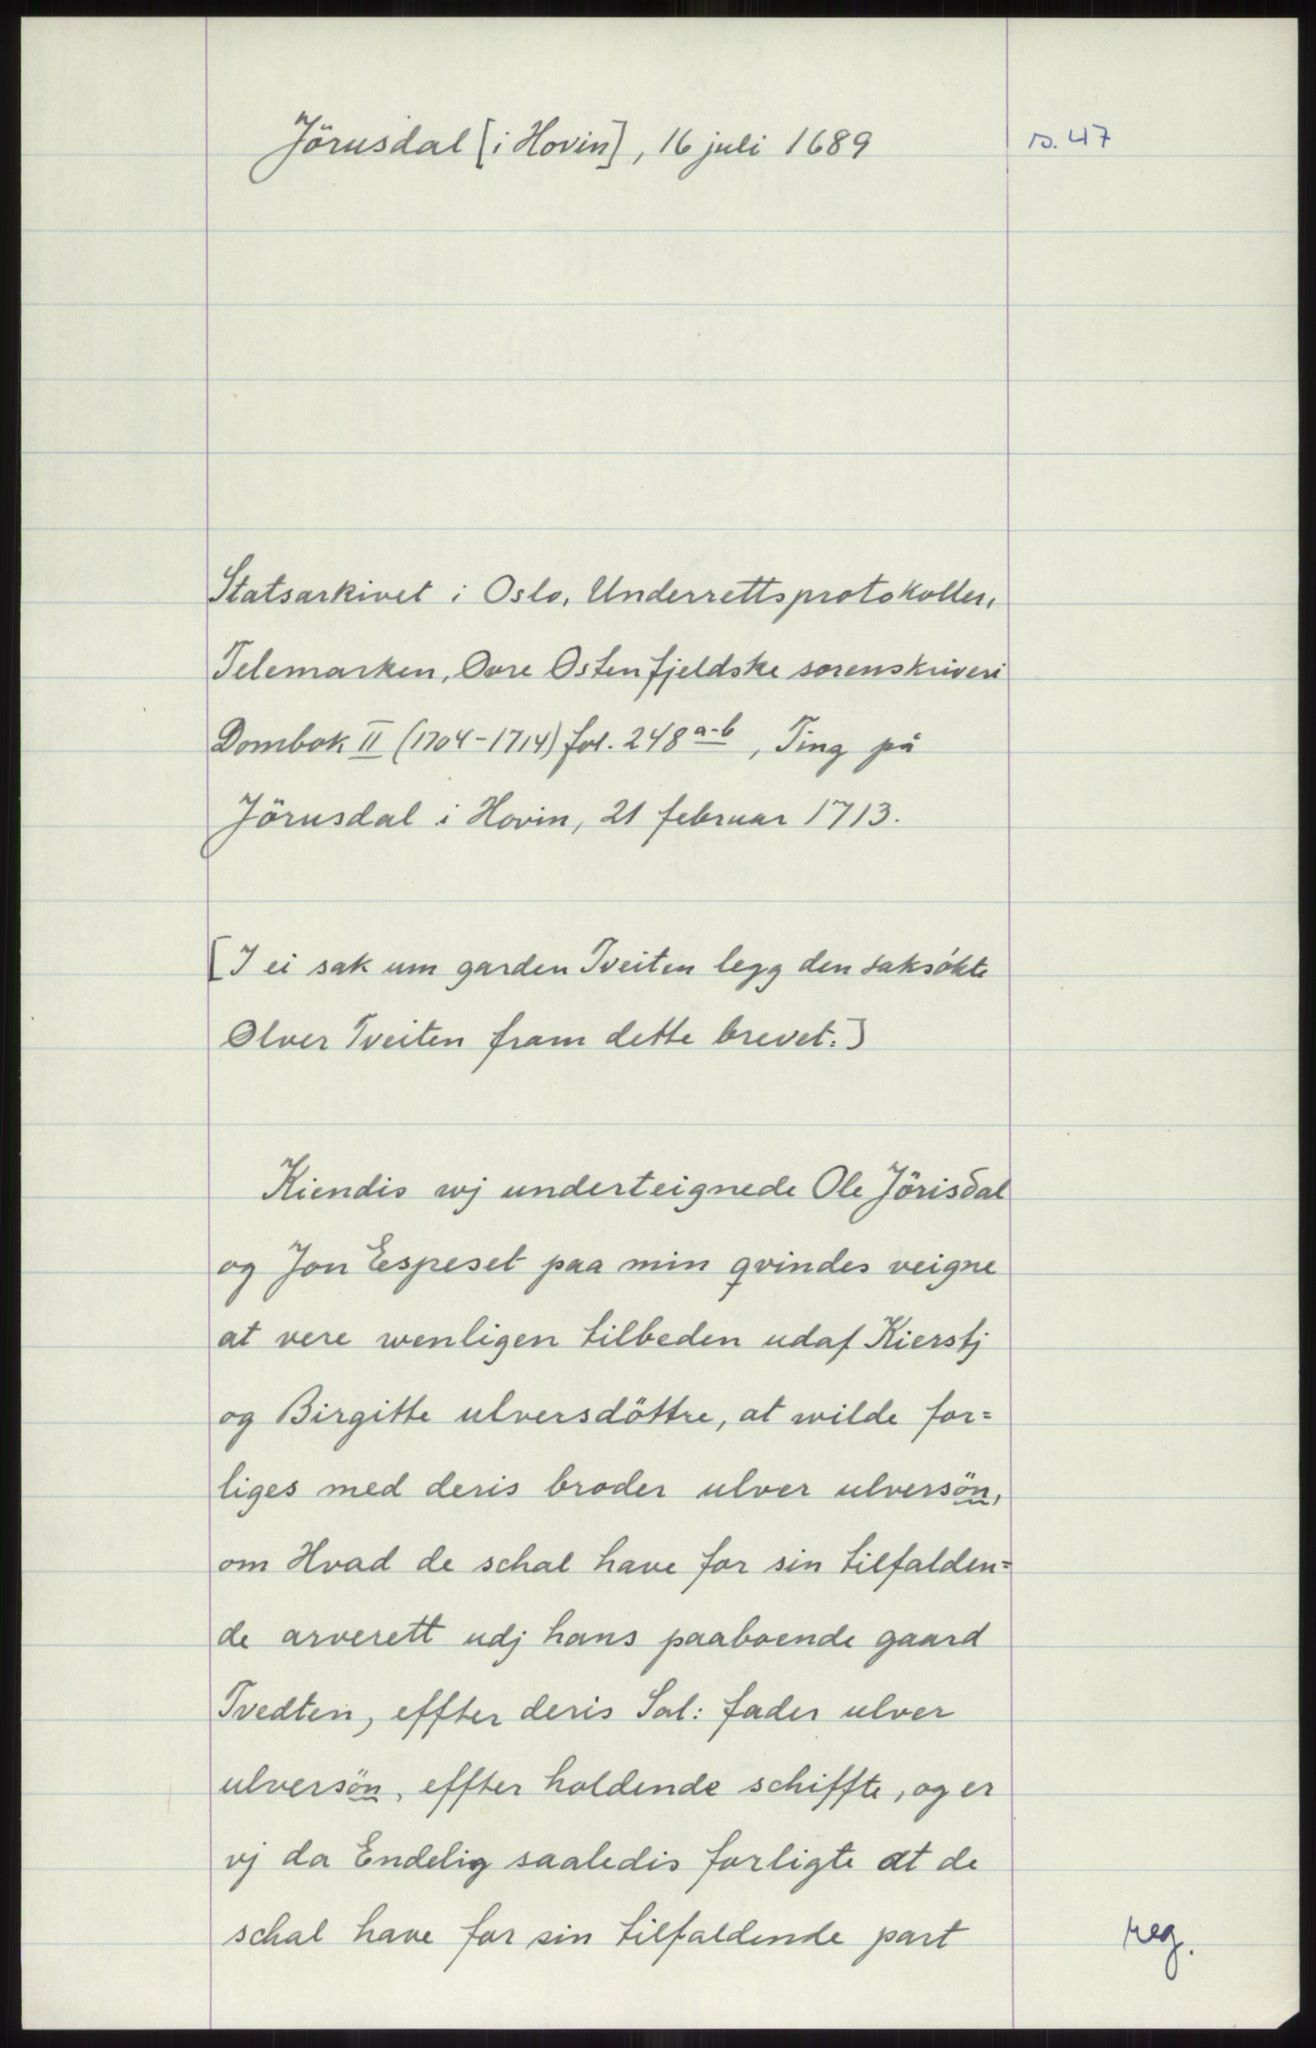 Jörusdal [i Hovin], 16 juli 1689
s. 47
Statsarkivet i Oslo, Underrettsprotokoller,
Telemarken, Øvre Østenfjeldske sorenskriveri
Dombok II (1704-1714) fol. 248 a-b, Ting på
Jörusdal i Hovin, 21 februar 1713.
[I ei sak um garden Tveiten legg den saksökte
Olver Tveiten fram dette brevet:]
Kiendis wj underteignede Ole Jörisdal
og Jon Espeset paa min qvindes veigne
at vere wenligen tilbeden udaf Kierstj
og Birgitte ulversdöttre, at wilde for=
liges med deris broder ulver ulversön,
om Hvad de schal have for sin tilfalden=
de arverett udj hans paaboende gaard
Tvedten, effter deris Sal: fader ulver
ulversön, effter holdende schiffte, og er
vj da Endelig saaledis forligte at de
schal have for sin tilfaldende part
reg.